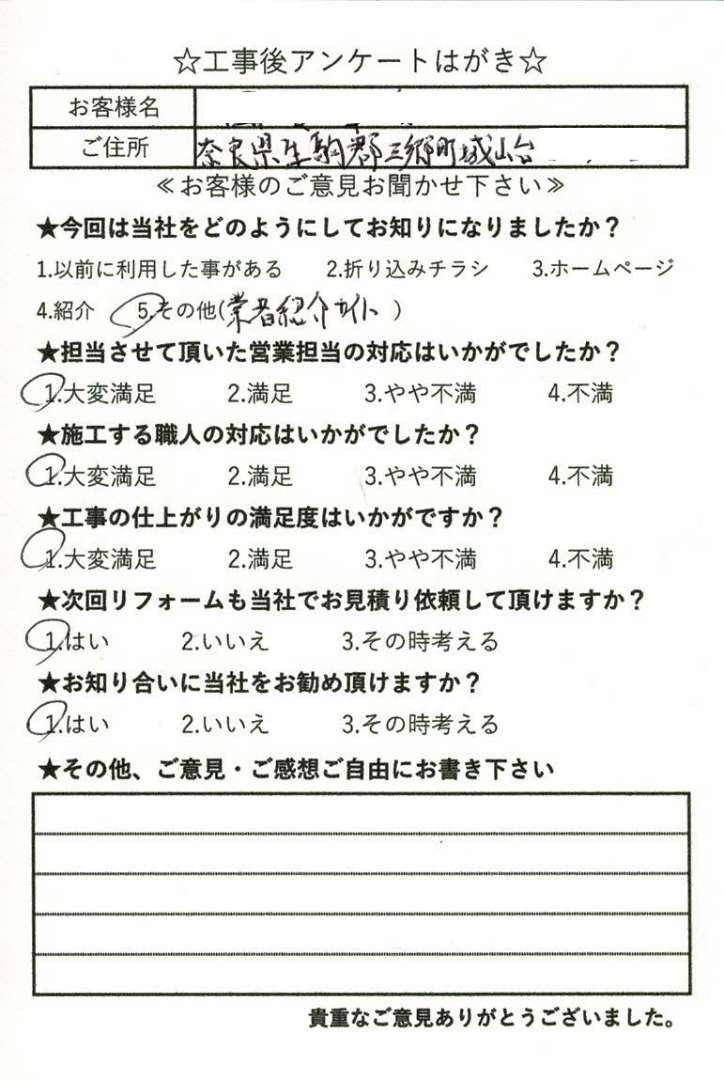 ☆工事後アンケートはがき☆
お客様名
ご住所 奈良県生駒郡三郷町城山台
≪お客様のご意見お聞かせ下さい≫
★今回は当社をどのようにしてお知りになりましたか？
1.以前に利用した事がある 2.折り込みチラシ 3.ホームページ
4.紹介 5.その他(業者紹介サイト )
★担当させて頂いた営業担当の対応はいかがでしたか？
1.大変満足 2.満足 3.やや不満 4.不満
★施工する職人の対応はいかがでしたか？
1.大変満足 2.満足 3.やや不満 4.不満
★工事の仕上がりの満足度はいかがですか？
1.大変満足 2.満足 3.やや不満 4.不満
★次回リフォームも当社でお見積り依頼して頂けますか？
1.はい 2.いいえ 3.その時考える
★お知り合いに当社をお勧め頂けますか？
1.はい 2.いいえ 3.その時考える
★その他、ご意見・ご感想ご自由にお書き下さい
貴重なご意見ありがとうございました。